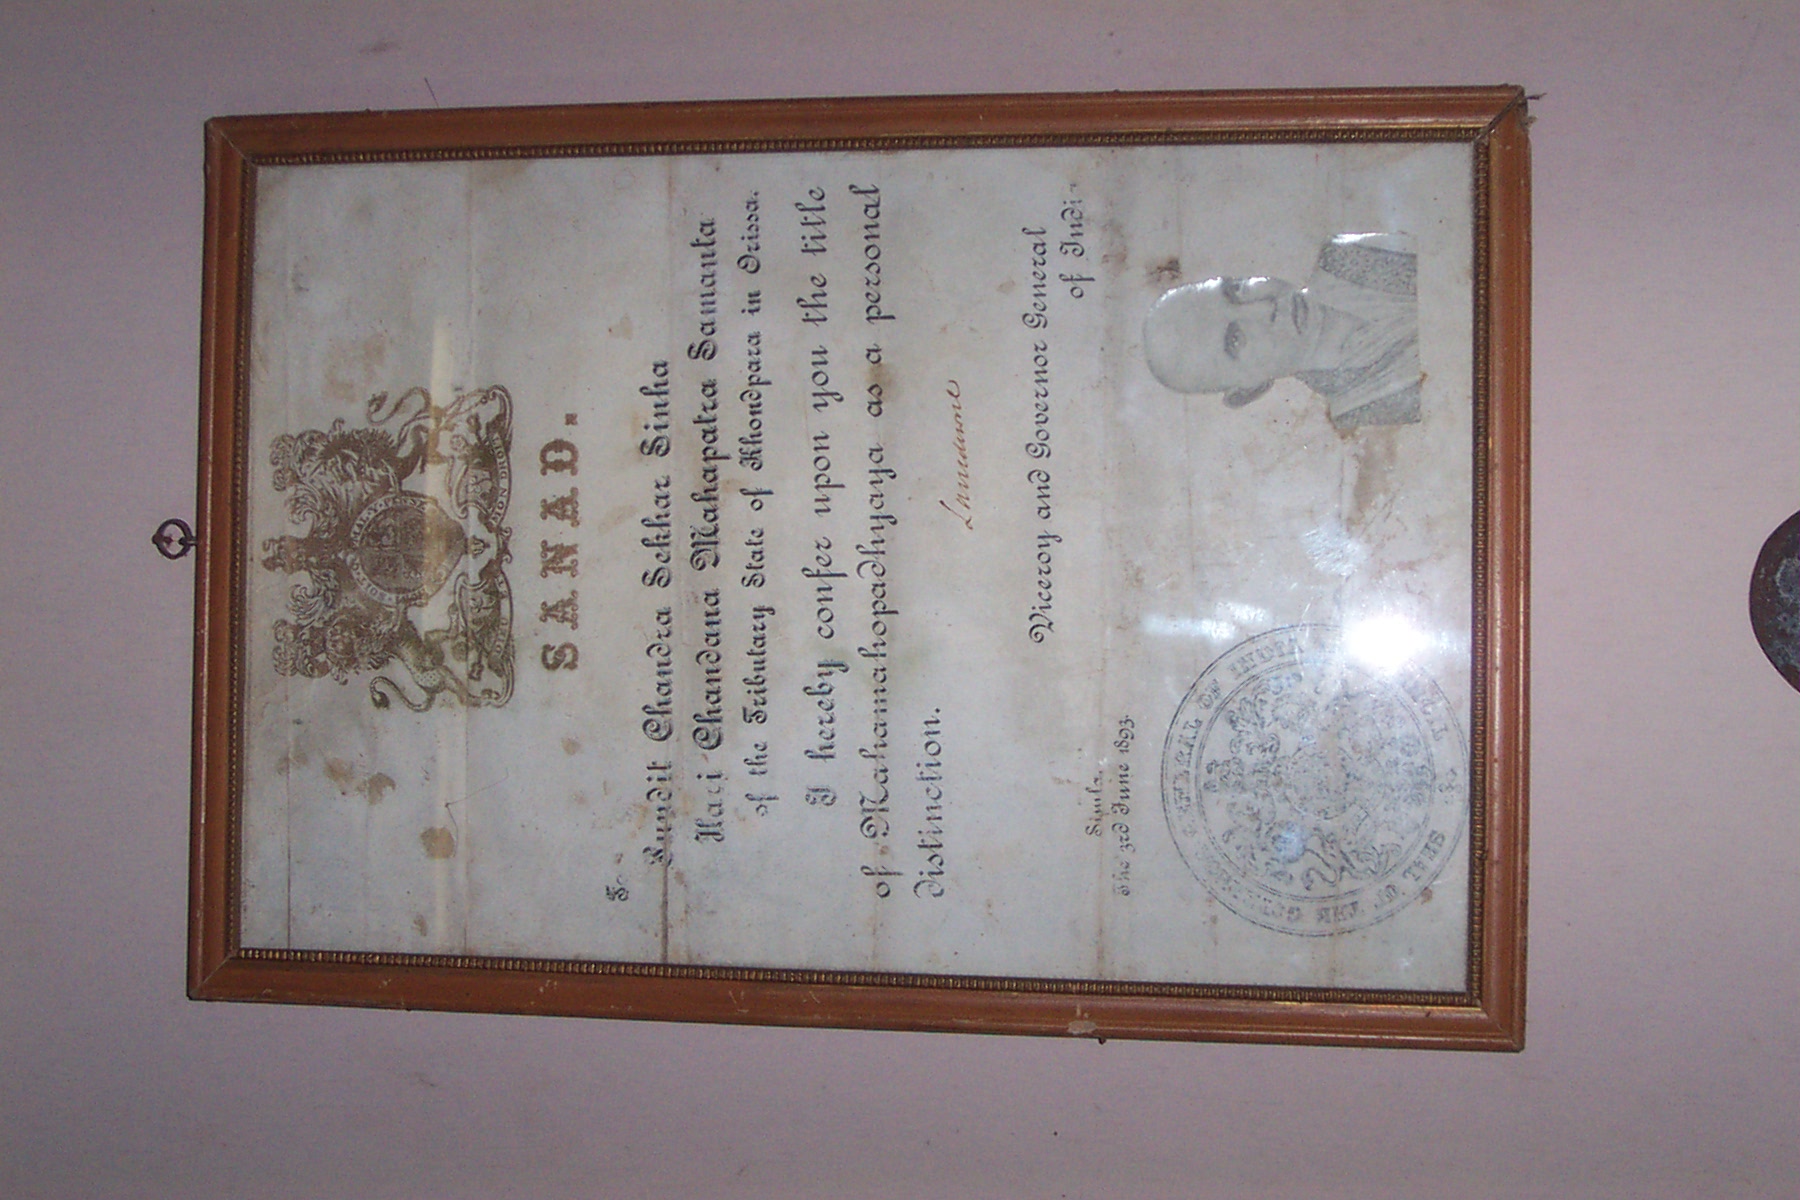 SANAD.
To
Pundit Chandra Sekhar Sinha
Hari Chandana Mahapatra Samanta
of the Tributary State of Khondpara in Orissa.
I hereby confer upon you the title
of Mahamahopadhyaya as a personal
distinction.
Lansdowne
Viceroy and Governor General
of Indi
Simla,
The 3rd June 1893.
SEAL OF THE GENERAL OF INDIA